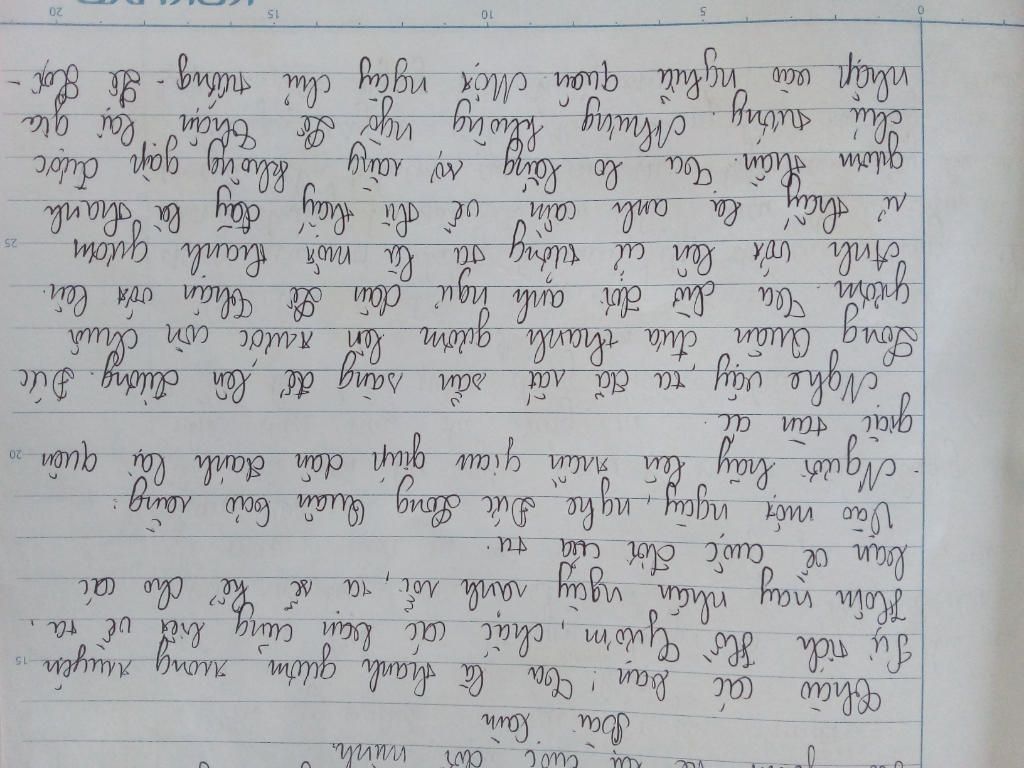 kể cuộc đời mình.
Bài làm
Chào các bạn! Ta là thanh gươm trong truyện
Sự tích Hồ Gươm, chắc các bạn cũng biết về ta.
Hôm nay nhân ngày rảnh rỗi, ta sẽ kể cho các
bạn về cuộc đời của ta.
Vào một ngày, nghe Đức Long Quân bảo rằng:
- Ngươi hãy lên trần gian giúp dân đánh lại quân
giặc tàn ác.
Nghe vậy, ta đã rất sẵn sàng để lên đường. Đức
Long Quân đưa thanh gươm lên trước còn chuôi
gươm. Ta chờ đợi anh ngư dân Lê Thận vớt lên.
Anh vớt lên cứ tưởng ta là một thanh gươm
kì thấy là anh cầm về thì thấy đấy là thanh
gươm thần. Ta lo lắng sợ rằng không gặp được
chủ tướng. Nhưng không ngờ Lê Thận lại gia
nhập vào nghĩa quân. Một ngày chủ tướng - Lê Lợi -
5
10
15
20
15
20
25